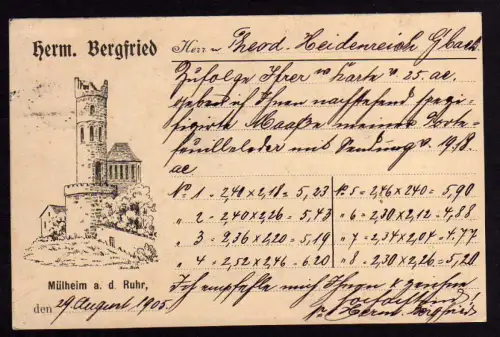 Herm. Bergfried
Herrn Theod. Heidenreich Gbach
Zufolge Ihrer w Karte v 25. ac.
geben ich Ihnen nachstehend spezi-
fizirte Maaße meiner Porte-
feuilleleder mit Sendung v. 19.8.
ac.
No 1 = 2,40 × 2,18 = 5,23 No 5 = 2,46 × 240 = 5,90
" 2 = 2,40 × 2,26 = 5,43 " 6 = 2,30 × 2,12 = 4,88
" 3 = 2,36 × 2,20 = 5,19 " 7 = 2,34 × 2,04 = 4.77
" 4 = 2,52 × 2,46 = 6.20 " 8 = 2.30 × 2,26 = 5,20
Ich empfehle mich Ihnen & zeichne
hochachtend
Herm. Bergfried
Mülheim a. d. Ruhr,
den 29 August 1905